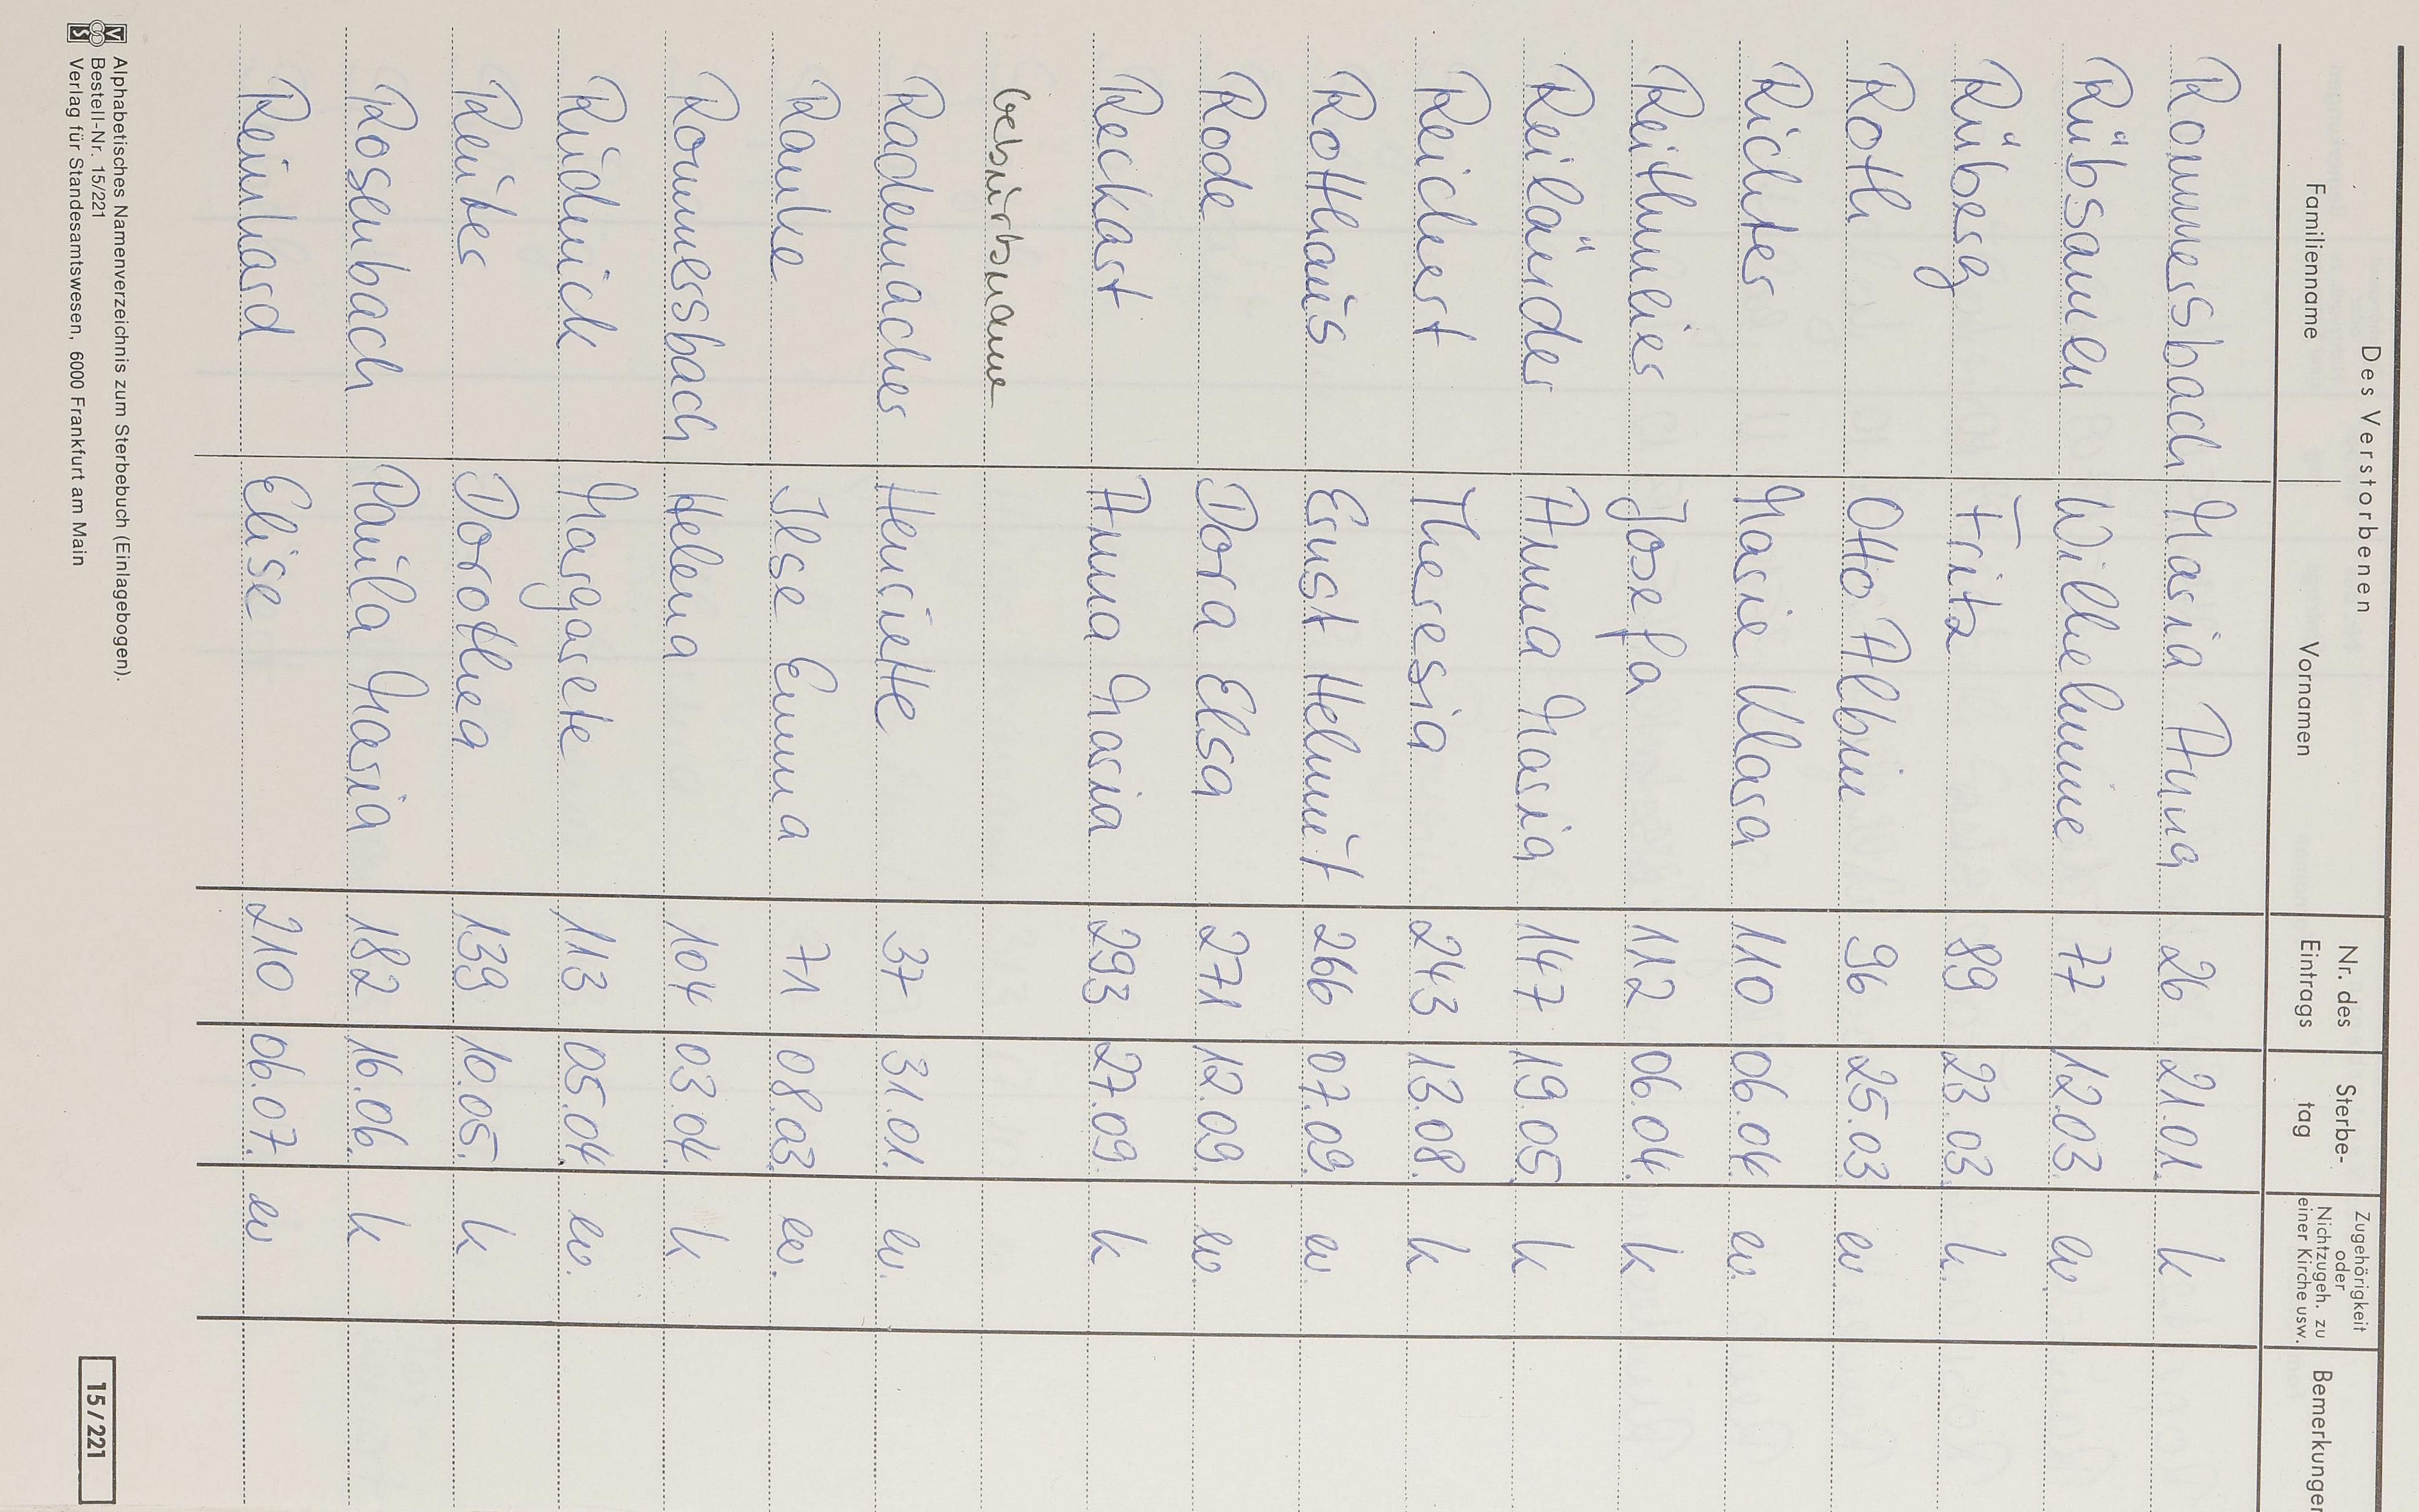 Des Verstorbenen
Familienname Vornamen Nr. des Eintrags Sterbe-tag Zugehörigkeit oder Nichtzugeh. zu einer Kirche usw. Bemerkungen
Rommersbach Maria Anna 26 21.01. k
Rübsamen Wilhelmine 77 12.03. ev.
Rüberg Fritz 89 23.03. k.
Roth Otto Albin 96 25.03 ev
Richter Marie Klara 110 06.04. ev.
Reithmeier Josefa 112 06.04. k
Reiländer Anna Maria 147 19.05 k
Reichert Theresia 243 13.08. k
Rotthaus Ernst Helmut 266 07.09. ev.
Rode Dora Elsa 271 12.09. ev.
Reckart Anna Maria 293 27.09. k
Geburtsname
Rademacher Henriette 37 31.01. ev.
Ranke Ilse Emma 71 08.03. ev.
Rommersbach Helena 104 03.04. k
Rüdnick Margarete 113 05.04. ev.
Reuter Dorothea 139 10.05. k
Rosenbach Paula Maria 182 16.06. k
Reinhard Elise 210 06.07. ev
Alphabetisches Namenverzeichnis zum Sterbebuch (Einlagebogen).
Bestell-Nr. 15/221
Verlag für Standesamtswesen, 6000 Frankfurt am Main
15/221